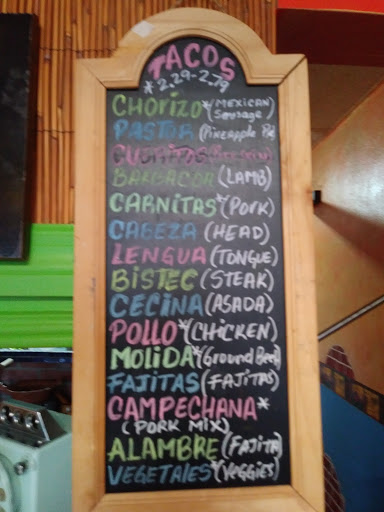 TACOS
* 2.29-2.79
CHORIZO* (MEXICAN Sausage
PASTOR (Pineapple
CUERITOS
BARBACOA (LAMB)
CARNITAS* (PORK)
CABEZA (HEAD)
LENGUA (TONGUE)
BISTEC (STEAK)
CECINA (ASADA)
POLLO* (CHICKEN)
MOLIDA* (Ground Beef)
FAJITAS (FAJITAS)
CAMPECHANA*
(PORK MIX)
ALAMBRE (FAJITA)
VEGETALES* (VEGGIES)